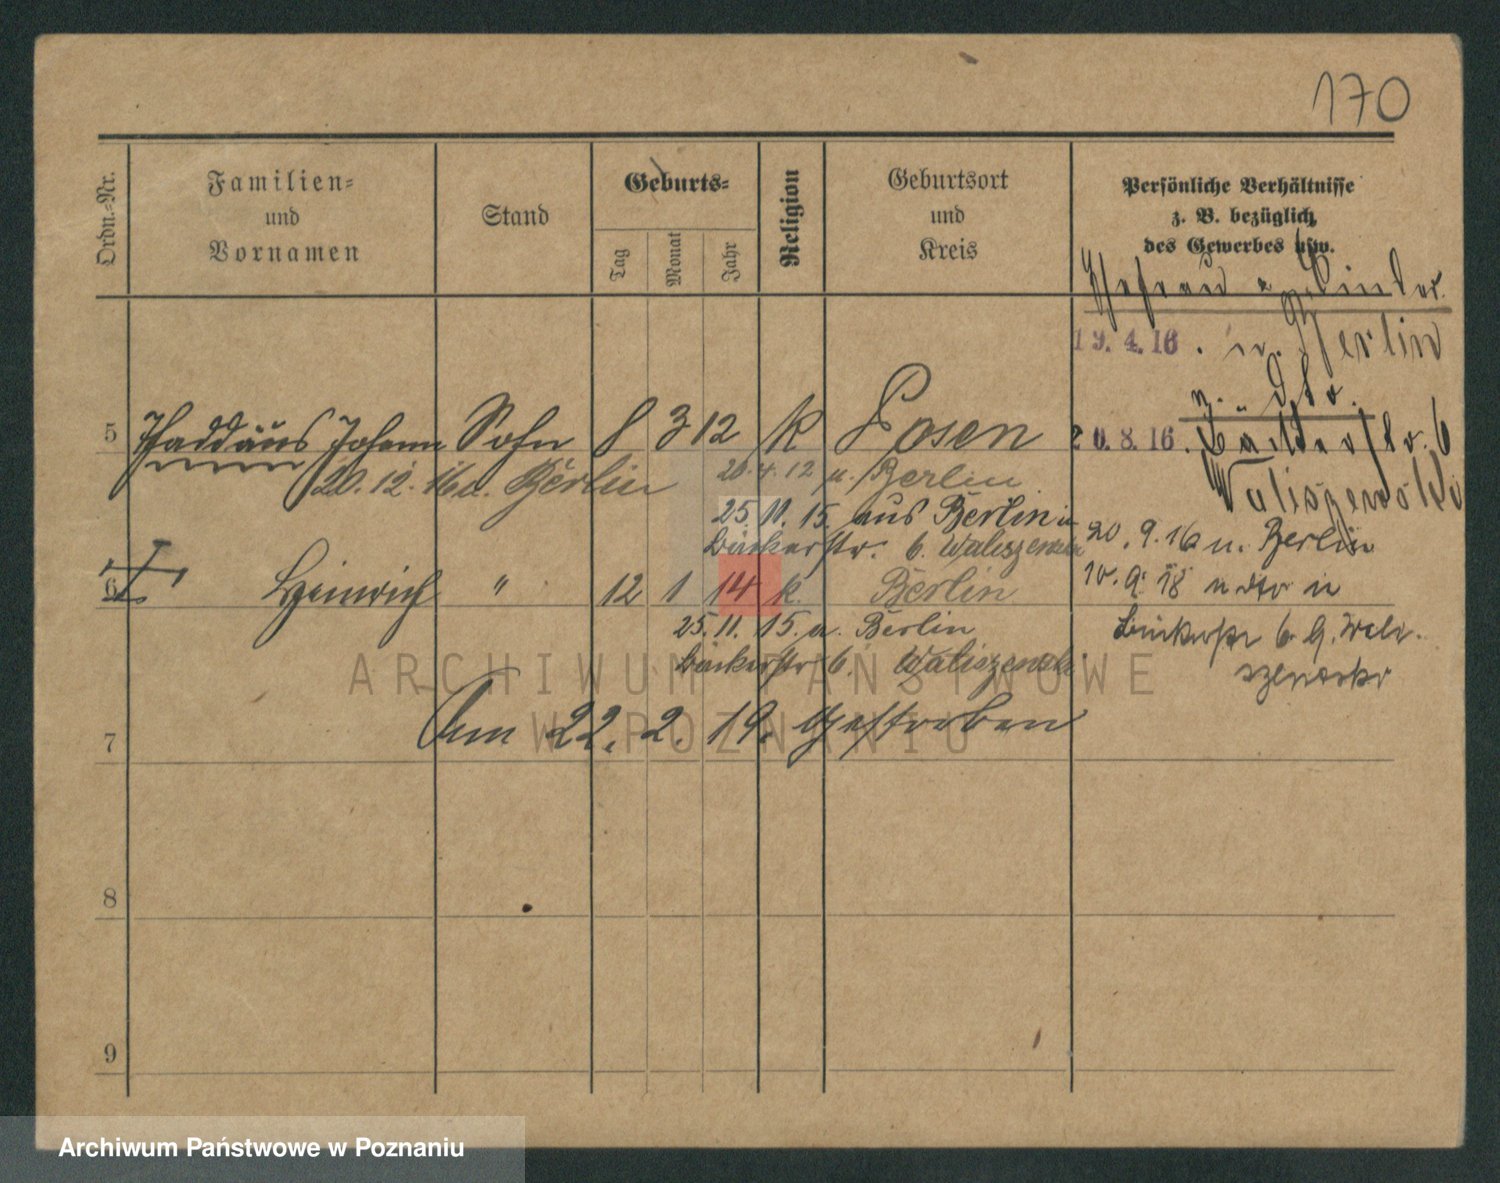 170
Ordn.-Nr.
Familien-
und
Vornamen
Stand
Geburts-
Tag
Monat
Jahr
Religion
Geburtsort
und
Kreis
Persönliche Verhältnisse
z. B. bezüglich
des Gewerbes usw.
Ehefrau u. Kinder
19.4.16. n. Berlin
v. dto.
5 Thaddäus Johann Sohn 8 3 12 k Posen
20.8.16. Bäckerstr. 6
Waliszewski
20.12.16 u. Berlin
20.4.12 u. Berlin
25.11.15. aus Berlin in
Bäckerstr. 6. Waliszewski
20.9.16 u. Berlin
6 Heinrich " 12 1 14 k. Berlin
10.9.18 u dto in
25.11.15. a. Berlin
Bäckerstr 6.
Bäckerstr 6. Waliszewski
ARCHIWUM PAŃSTWOWE
W POZNANIU
7 Am 22.2.19. Gestorben
8
9
Archiwum Państwowe w Poznaniu